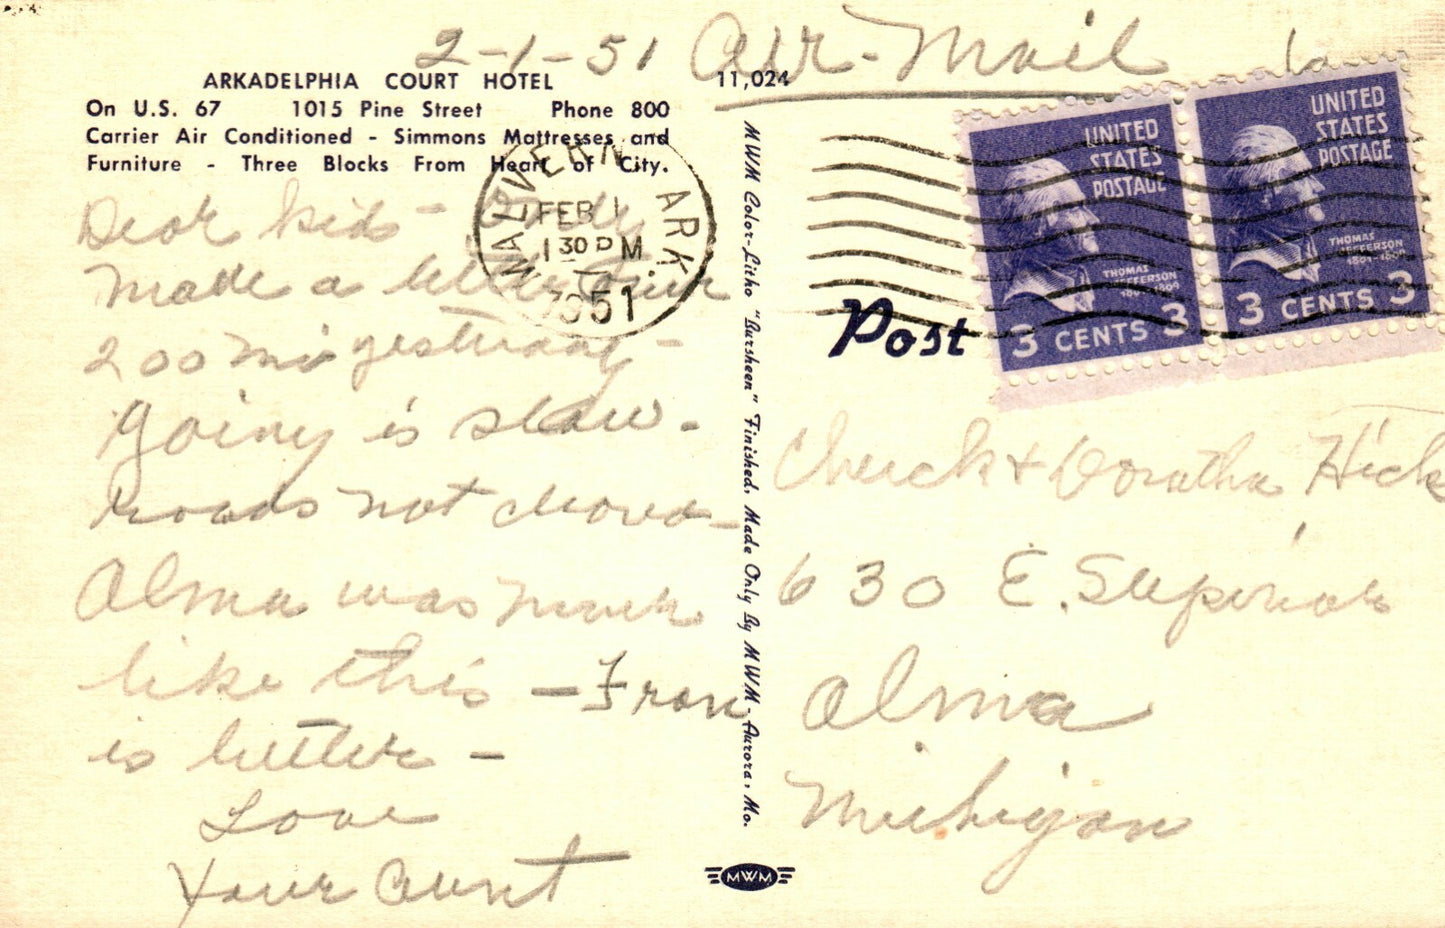 2-1-51 Air-Mail
ARKADELPHIA COURT HOTEL
11,024
On U.S. 67 1015 Pine Street Phone 800
Carrier Air Conditioned - Simmons Mattresses and
Furniture - Three Blocks From Heart of City.
MALVERN ARK.
FEB 1
1 30 PM
1951
Dear kids - Only
made a little over
200 mi yesterday -
Going is slow -
roads not
Alma was never
like this - Fran
is better -
Love
Your Aunt
MWM Color-Litho "Bursheen" Finished, Made Only By MWM, Aurora, Mo.
MWM
UNITED
STATES
POSTAGE
THOMAS
JEFFERSON
1801-1809
3 CENTS 3
UNITED
STATES
POSTAGE
THOMAS
JEFFERSON
1801-1809
3 CENTS 3
Post
Chuck & Doratha Hicks
630 E. Superior
Alma
Michigan